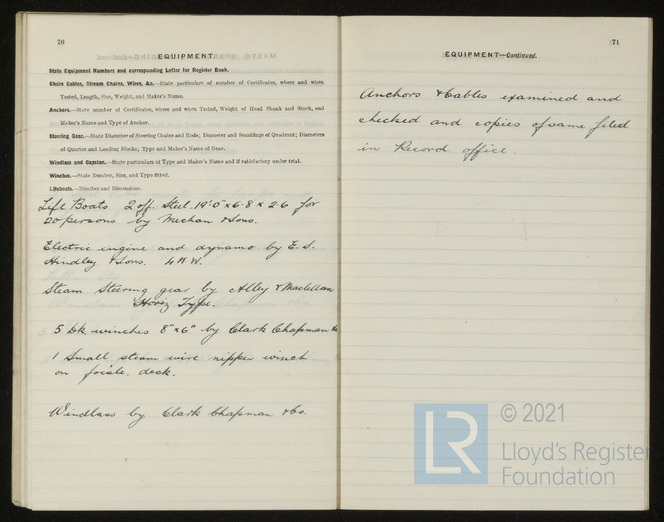 70
EQUIPMENT.
State Equipment Numbers and corresponding Letter for Register Book.
Chain Cables, Stream Chains, Wires, &c.—State particulars of number of Certificates, where and when
Tested, Length, Size, Weight, and Maker's Name.
Anchors.—State number of Certificates, where and when Tested, Weight of Head Shank and Stock, and
Maker's Name and Type of Anchor.
Steering Gear.—State Diameter of Steering Chains and Rods; Diameter and Scantlings of Quadrant; Diameters
of Quarter and Leading Blocks; Type and Maker's Name of Gear.
Windlass and Capstan.—State particulars of Type and Maker's Name and if satisfactory under trial.
Winches.—State Number, Size, and Type fitted.
Lifeboats.—Number and Dimensions.
Life Boats 2 off Steel. 19'0" x 6·8 x 2·6 for
20 persons by Mechan & Sons.
Electric engine and dynamo by E. S.
Hindley & Sons. 4 K W.
Steam Steering gear by Alley & Maclellan
Horiz Type.
5 Dk. winches 8" x 6" by Clark Chapman &Co
1 Small steam wire nipper winch
on fo'c'sle. deck.
Windlass by Clark Chapman &Co.
71
EQUIPMENT—Continued.
Anchors & Cables examined and
checked and copies of same filed
in Record office.
LR
© 2021
Lloyd's Register
Foundation